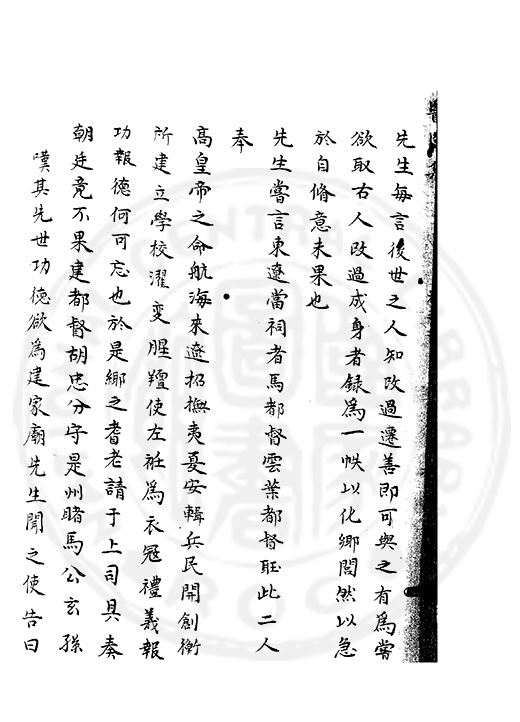 先生每言後世之人知改過遷善即可與之有為嘗
欲取古人改過成身者錄為一帙以化鄉閭然以急
於自脩意未果也
先生嘗言東遼當祠者馬都督雲葉都督旺此二人
奉
高皇帝之命航海來遼招撫夷憂安輯兵民開創衛
所建立學校濯變腥羶使左袵為衣冠禮義報
功報德何可忘也於是鄉之耆老請于上司具奏
朝廷竟不果建都督胡忠分守是州睹馬公玄孫
嘆其先世功德欲為建家廟先生聞之使告曰